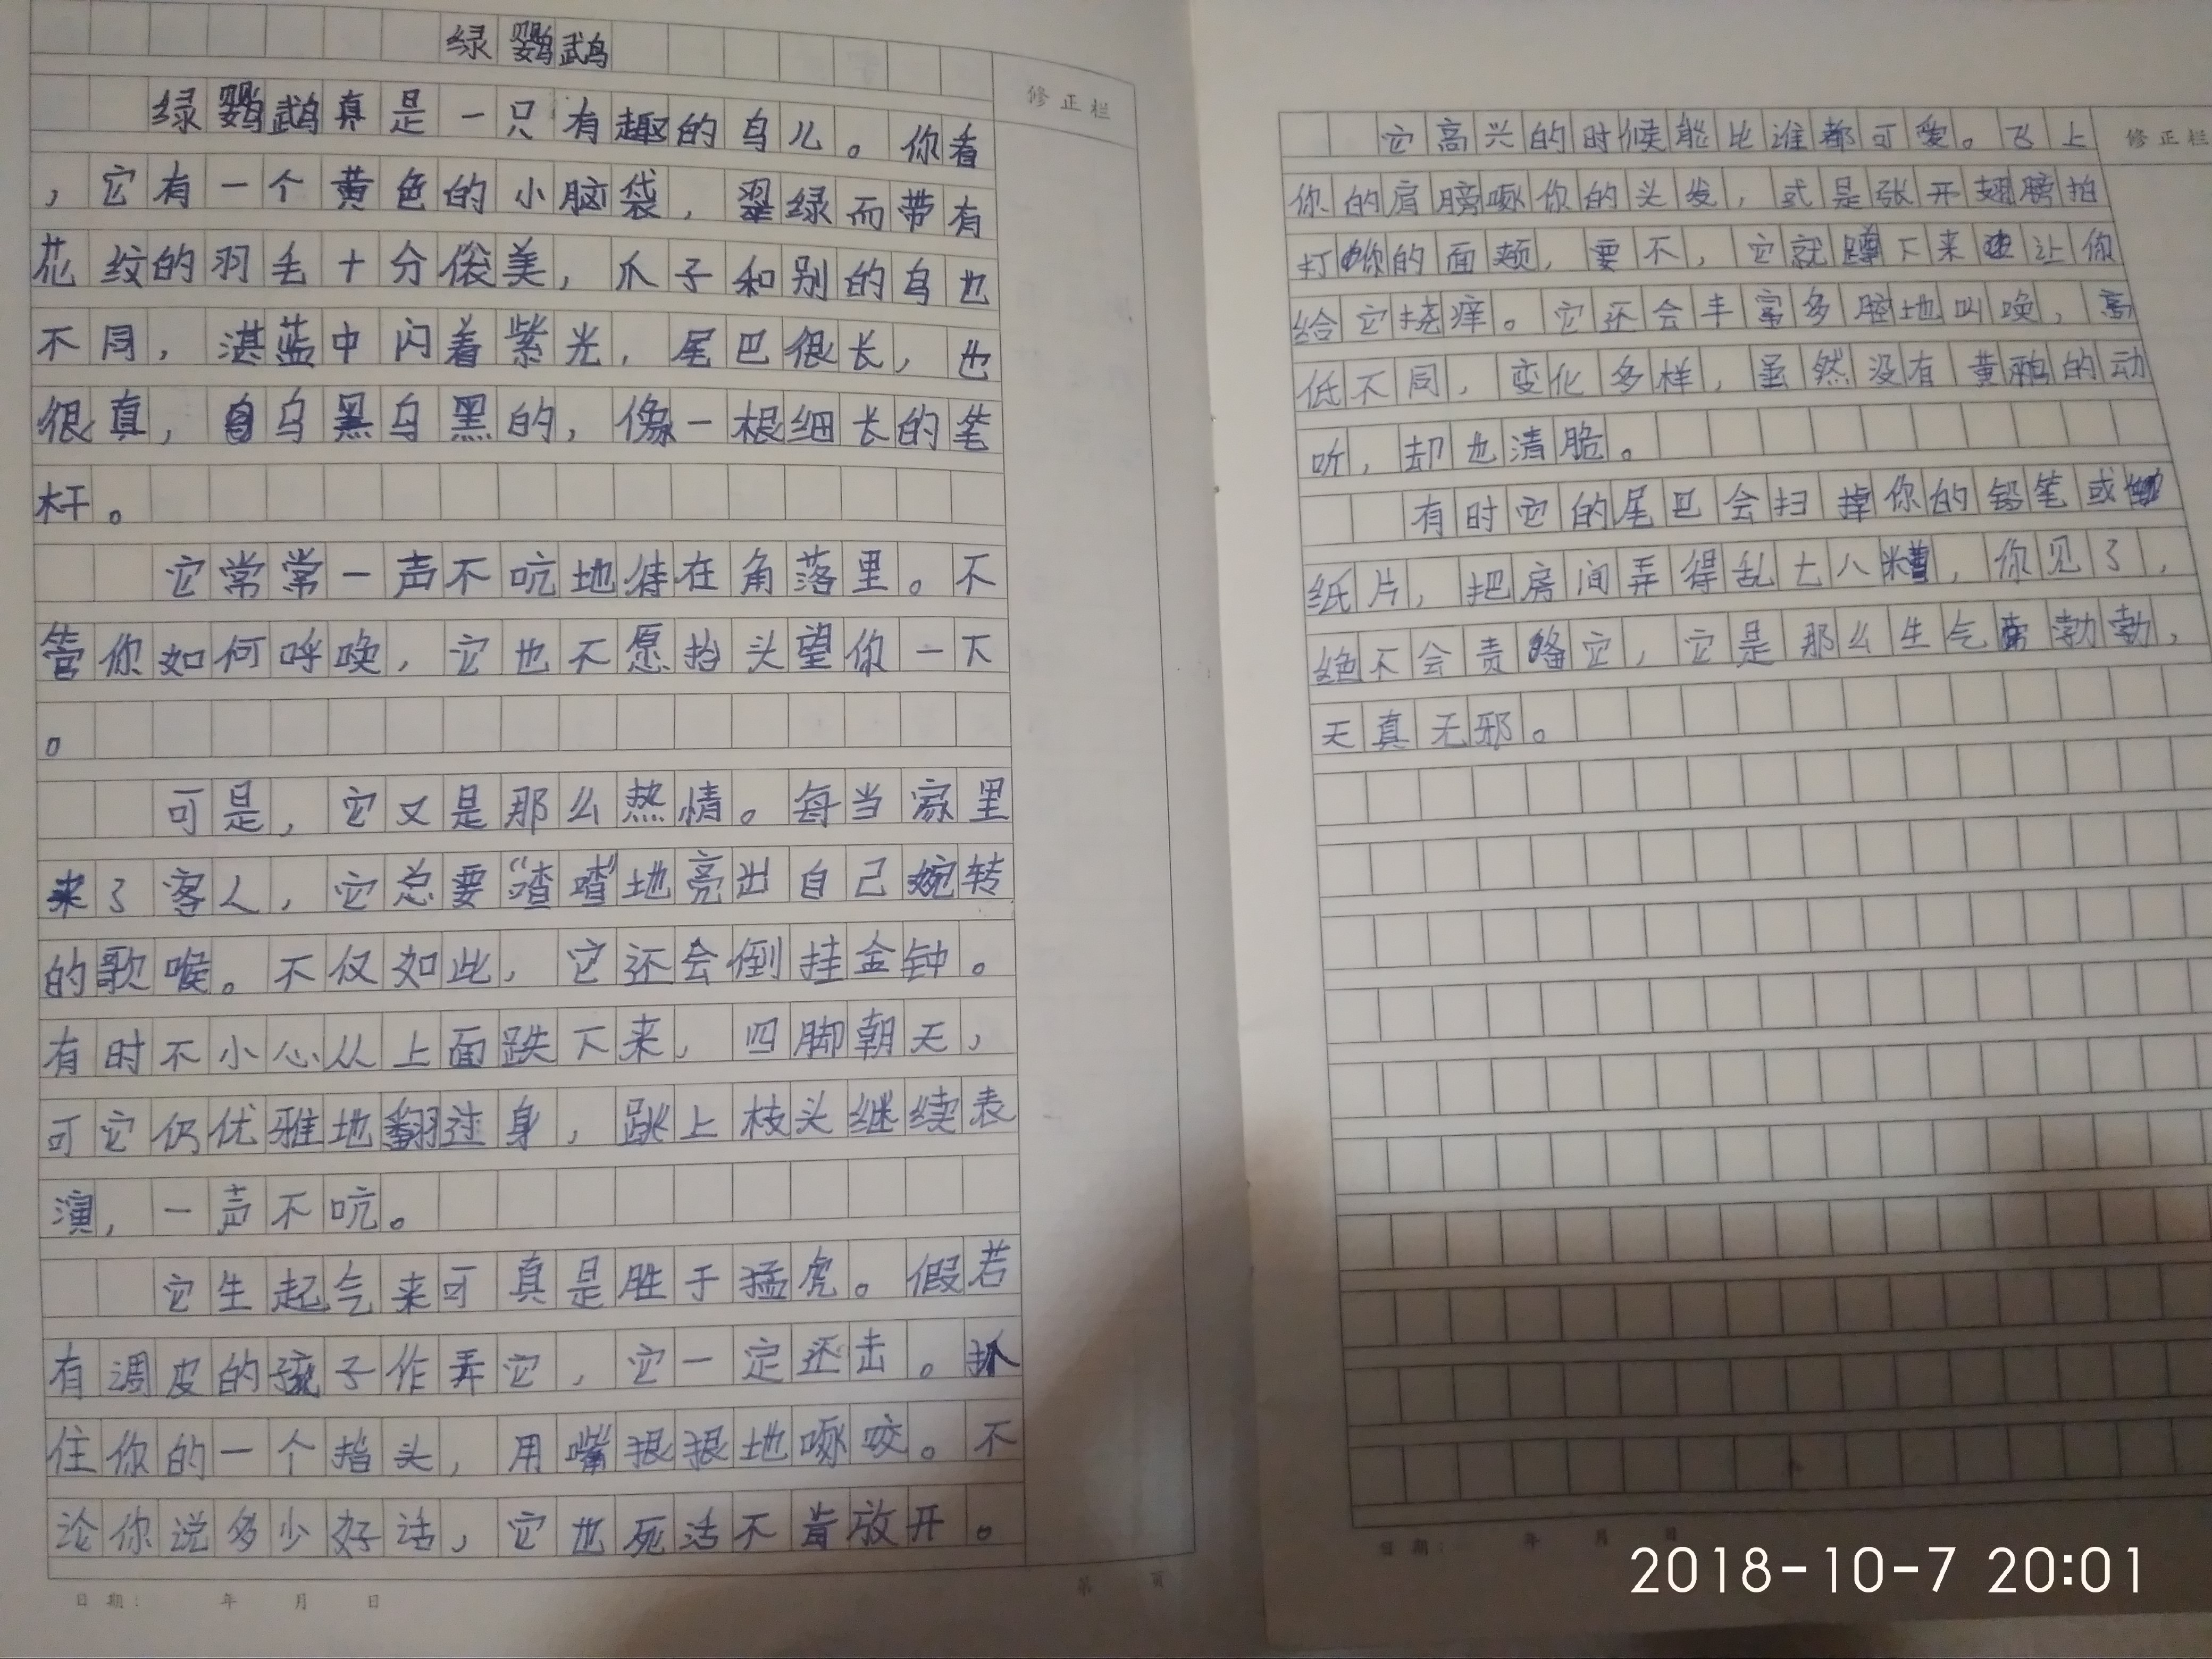 绿鹦鹉
修正栏
绿鹦鹉真是一只有趣的鸟儿。你看
，它有一个黄色的小脑袋，翠绿而带有
花纹的羽毛十分俊美，爪子和别的鸟也
不同，湛蓝中闪着紫光，尾巴很长，也
很真，乌黑乌黑的，像一根细长的笔
杆。
它常常一声不吭地待在角落里。不
管你如何呼唤，它也不愿抬头望你一下
。
可是，它又是那么热情。每当家里
来了客人，它总要“喳喳”地亮出自己婉转
的歌喉。不仅如此，它还会倒挂金钟。
有时不小心从上面跌下来，四脚朝天，
可它仍优雅地翻过身，跳上枝头继续表
演，一声不吭。
它生起气来可真是胜于猛虎。假若
有调皮的孩子作弄它，它一定还击。抓
住你的一个指头，用嘴狠狠地啄咬。不
论你说多少好话，它也死活不肯放开。
日期： 年 月 日
第 页
修正栏
它高兴的时候能比谁都可爱。飞上
你的肩膀啄你的头发，或是张开翅膀拍
打你的面颊，要不，它就蹲下来让你
给它挠痒。它还会丰富多腔地叫唤，高
低不同，变化多样，虽然没有黄鹂的动
听，却也清脆。
有时它的尾巴会扫掉你的铅笔或
纸片，把房间弄得乱七八糟，你见了，
绝不会责备它，它是那么生气勃勃，
天真无邪。
日期： 年 月 日
2018-10-7 20:01